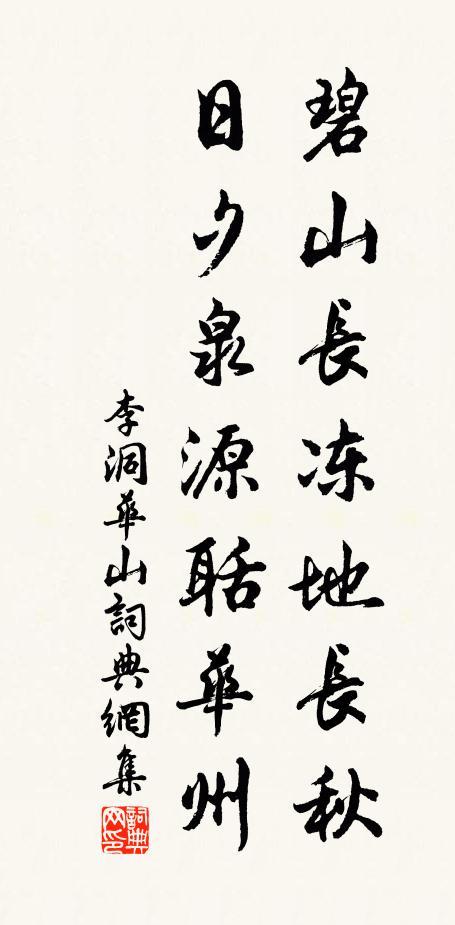 碧山長冻地長秋
日夕泉源聒華州
李洞華山詞典網集
詞典网印